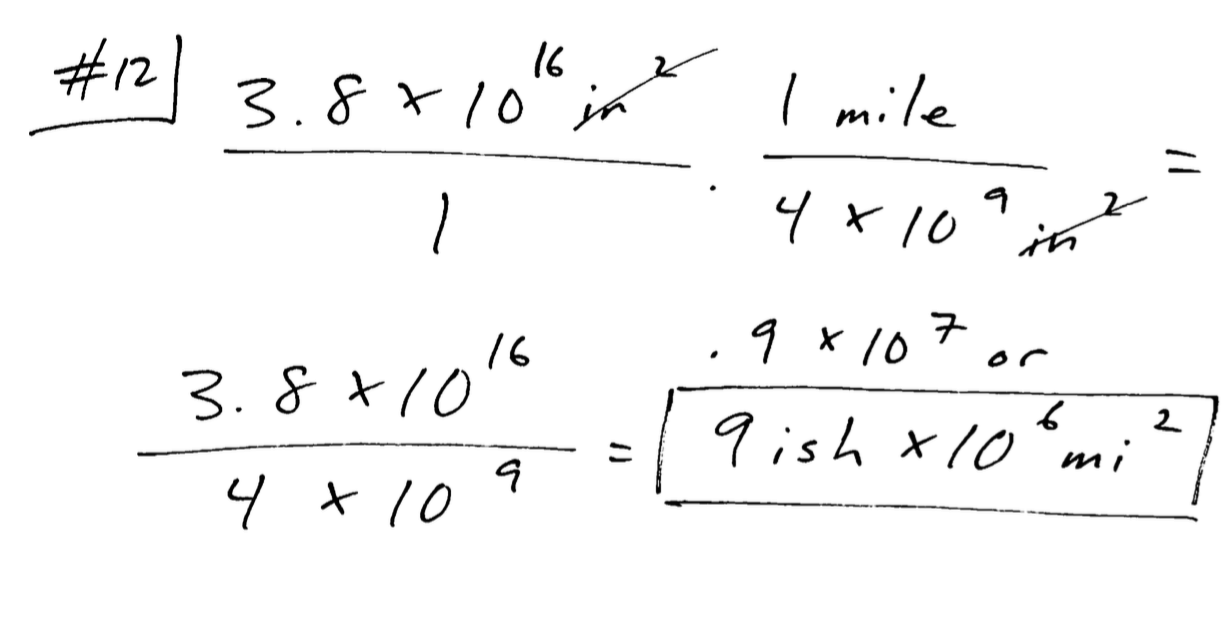 #12
3.8 × 10^16 in^2 / 1 · 1 mile / 4 × 10^9 in^2 =
3.8 × 10^16 / 4 × 10^9 = .9 × 10^7 or
9ish × 10^6 mi^2